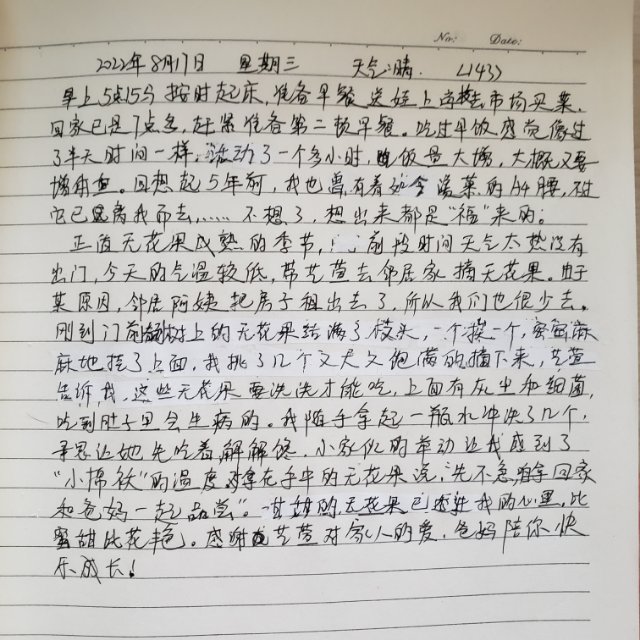 No: Date:
2022年8月17日 星期三 天气:晴. (143)
早上5点15分按时起床,准备早餐 送娃上学去市场买菜,
回家已是7点多,赶紧准备第二顿早餐。吃过早饭感觉像过
了半天时间一样,活动了一个多小时,饭量大增,大概又要
增体重。回想起5年前,我也曾有着如今羡慕的A4腰,不过
它已远离我而去,......不想了,想出来都是"福"来的。
正值无花果成熟的季节,前段时间天气太热没有
出门,今天的气温较低,带艺萱去邻居家摘无花果。由于
某原因,邻居阿姨把房子租出去了,所以我们也很少去。
刚到门前树上的无花果结满了枝头,一个挨一个,密密麻
麻地挂了上面,我挑了几个又大又饱满的摘下来,艺萱
告诉我,这些无花果要洗洗才能吃,上面有灰尘和细菌,
吃到肚子里会生病的。我随手拿起一瓶水冲洗了几个,
寻思让她先吃着解解馋,小家伙的举动让我感到了
"小棉袄"的温度,对拿在手中的无花果说:先不急,拿回家
和爸妈一起品尝"。甘甜的无花果已进我的心里,比
蜜甜比花艳。感谢艺萱对家人的爱,爸妈陪你快
乐成长!